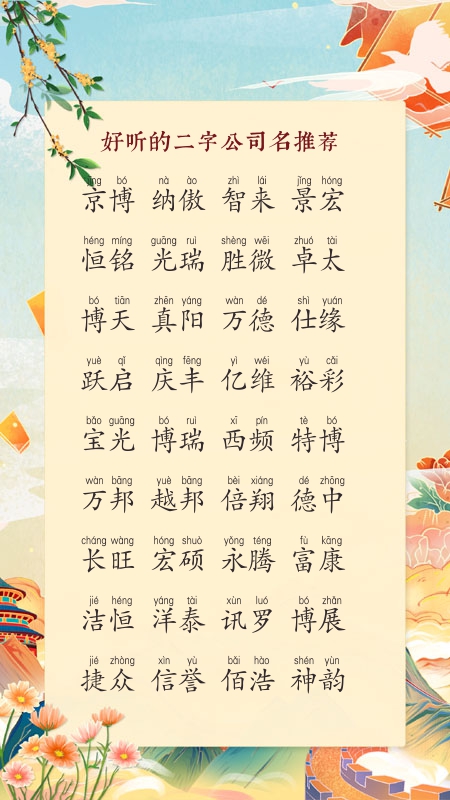 好听的二字公司名推荐
jīng bó nà ào zhì lái jǐng hóng
京博 纳傲 智来 景宏
héng míng guāng ruì shèng wēi zhuó tài
恒铭 光瑞 胜微 卓太
bó tiān zhēn yáng wàn dé shì yuán
博天 真阳 万德 仕缘
yuè qǐ qìng fēng yì wéi yù cǎi
跃启 庆丰 亿维 裕彩
bǎo guāng bó ruì xī pín tè bó
宝光 博瑞 西频 特博
wàn bāng yuè bāng bèi xiáng dé zhōng
万邦 越邦 倍翔 德中
cháng wàng hóng shuò yǒng téng fù kāng
长旺 宏硕 永腾 富康
jié héng yáng tài xùn luó bó zhǎn
洁恒 洋泰 讯罗 博展
jié zhòng xìn yù bǎi hào shén yùn
捷众 信誉 佰浩 神韵